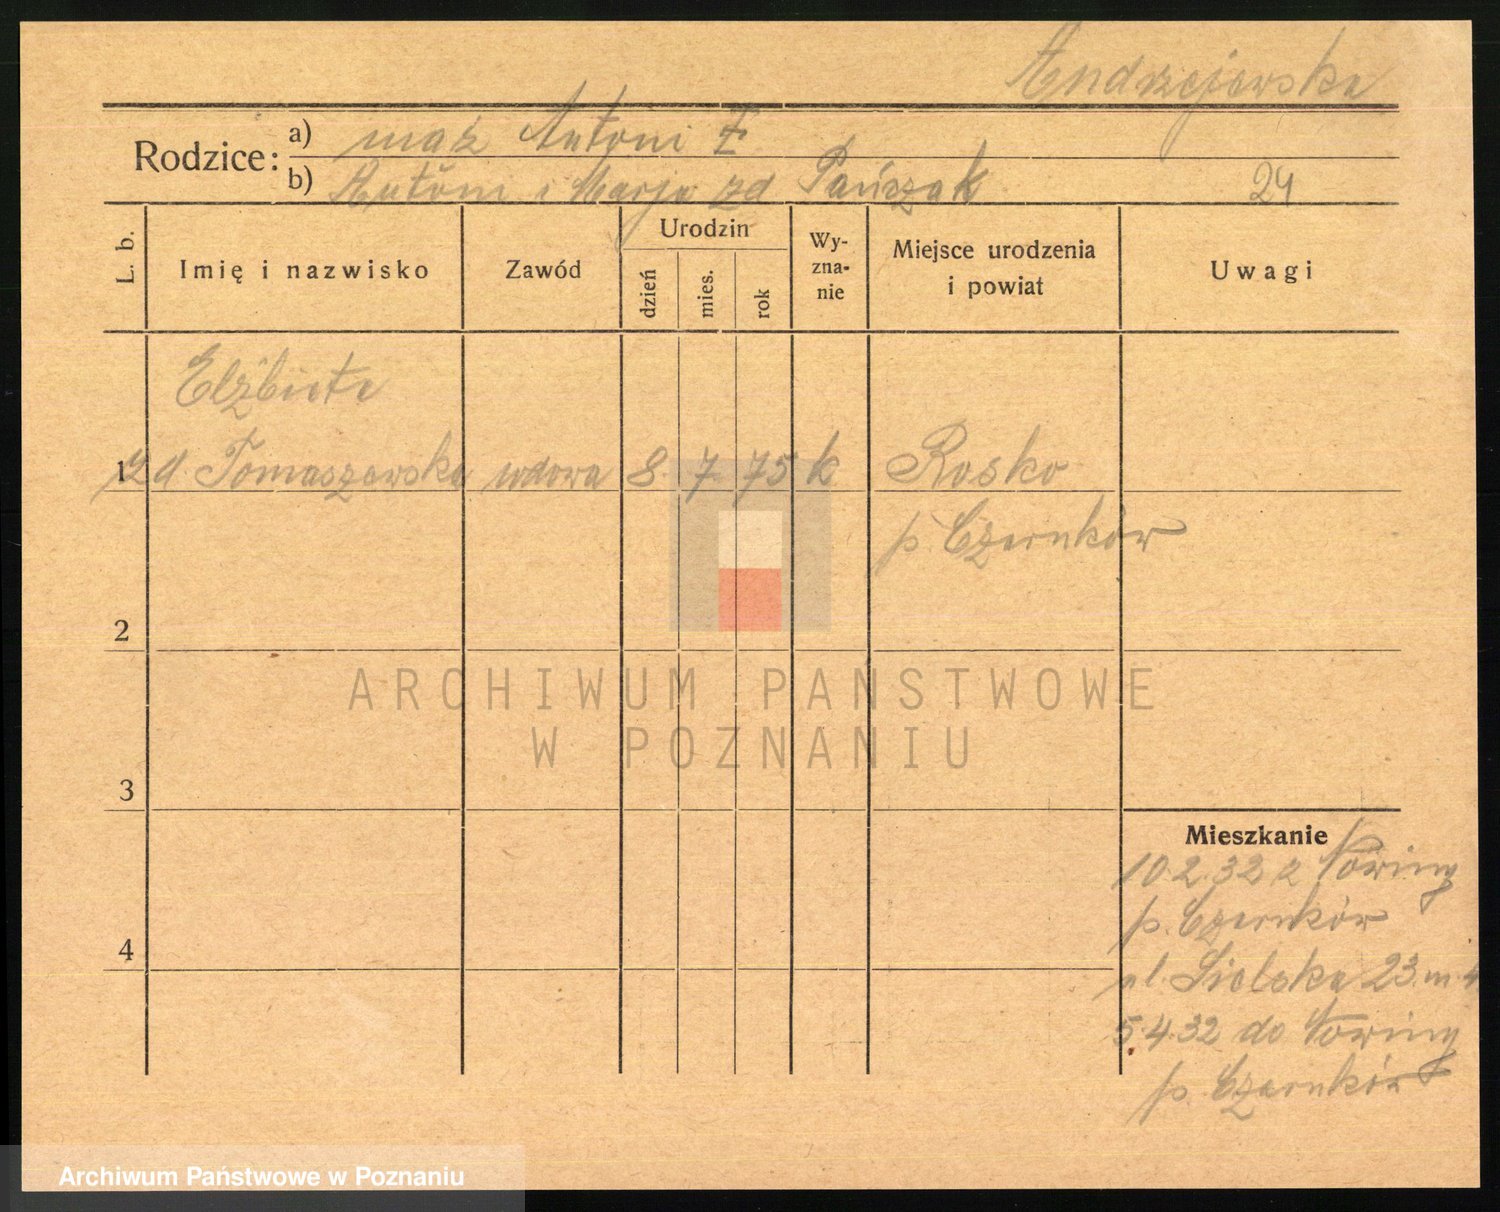 Andrzejewska
Rodzice: a) mąż Antoni
b) Antoni i Marja zd Pańczak 24
L. b. Imię i nazwisko Zawód Urodzin dzień mies. rok Wy-zna-nie Miejsce urodzenia i powiat Uwagi
Elżbieta
1 zd. Tomaszewska wdowa 8. 7. 75 k Rosko
p. Czarnków
2
ARCHIWUM PAŃSTWOWE
W POZNANIU
3
Mieszkanie
10.2.32 z
p. Czarnków
4
ul. Sielska 23 m 4
5.4.32 do
p. Czarnków
Archiwum Państwowe w Poznaniu